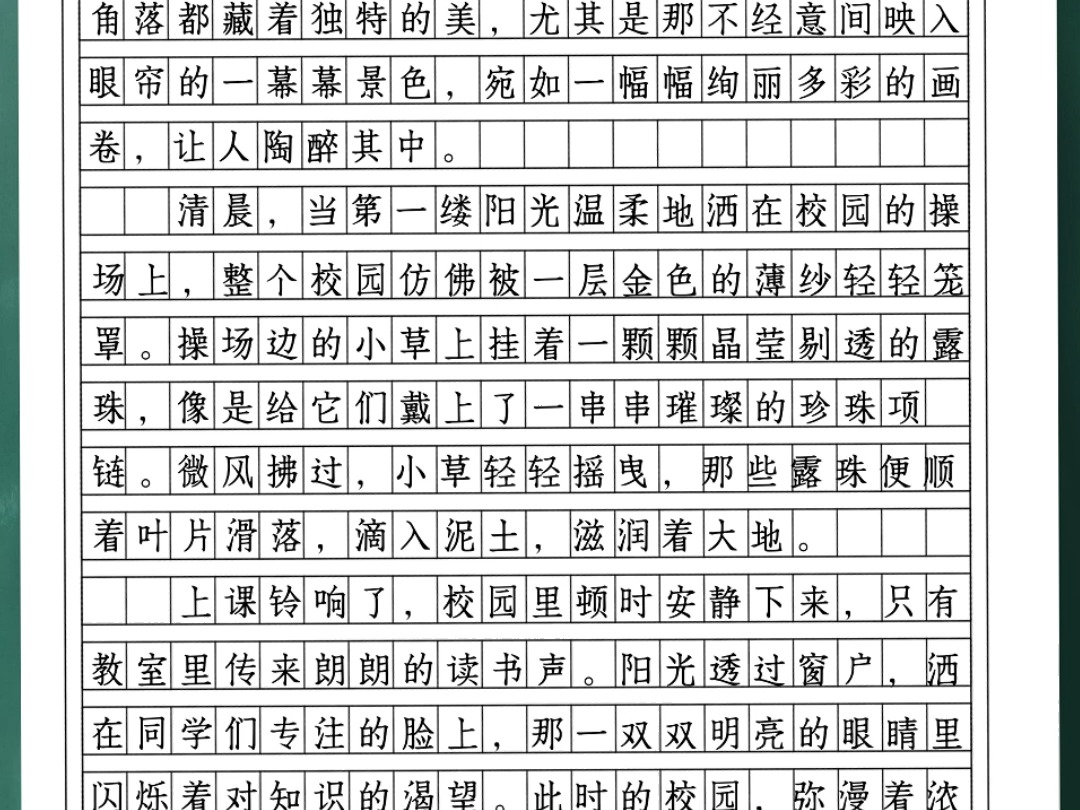 角落都藏着独特的美，尤其是那不经意间映入
眼帘的一幕幕景色，宛如一幅幅绚丽多彩的画
卷，让人陶醉其中。
清晨，当第一缕阳光温柔地洒在校园的操
场上，整个校园仿佛被一层金色的薄纱轻轻笼
罩。操场边的小草上挂着一颗颗晶莹剔透的露
珠，像是给它们戴上了一串串璀璨的珍珠项
链。微风拂过，小草轻轻摇曳，那些露珠便顺
着叶片滑落，滴入泥土，滋润着大地。
上课铃响了，校园里顿时安静下来，只有
教室里传来朗朗的读书声。阳光透过窗户，洒
在同学们专注的脸上，那一双双明亮的眼睛里
闪烁着对知识的渴望。此时的校园，弥漫着浓